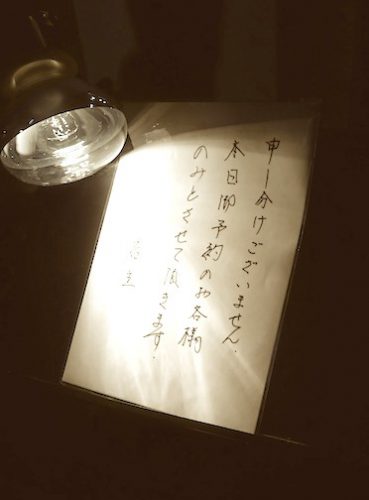 申し分けございません。
本日御予約のお客様
のみとさせて頂きます。
店主